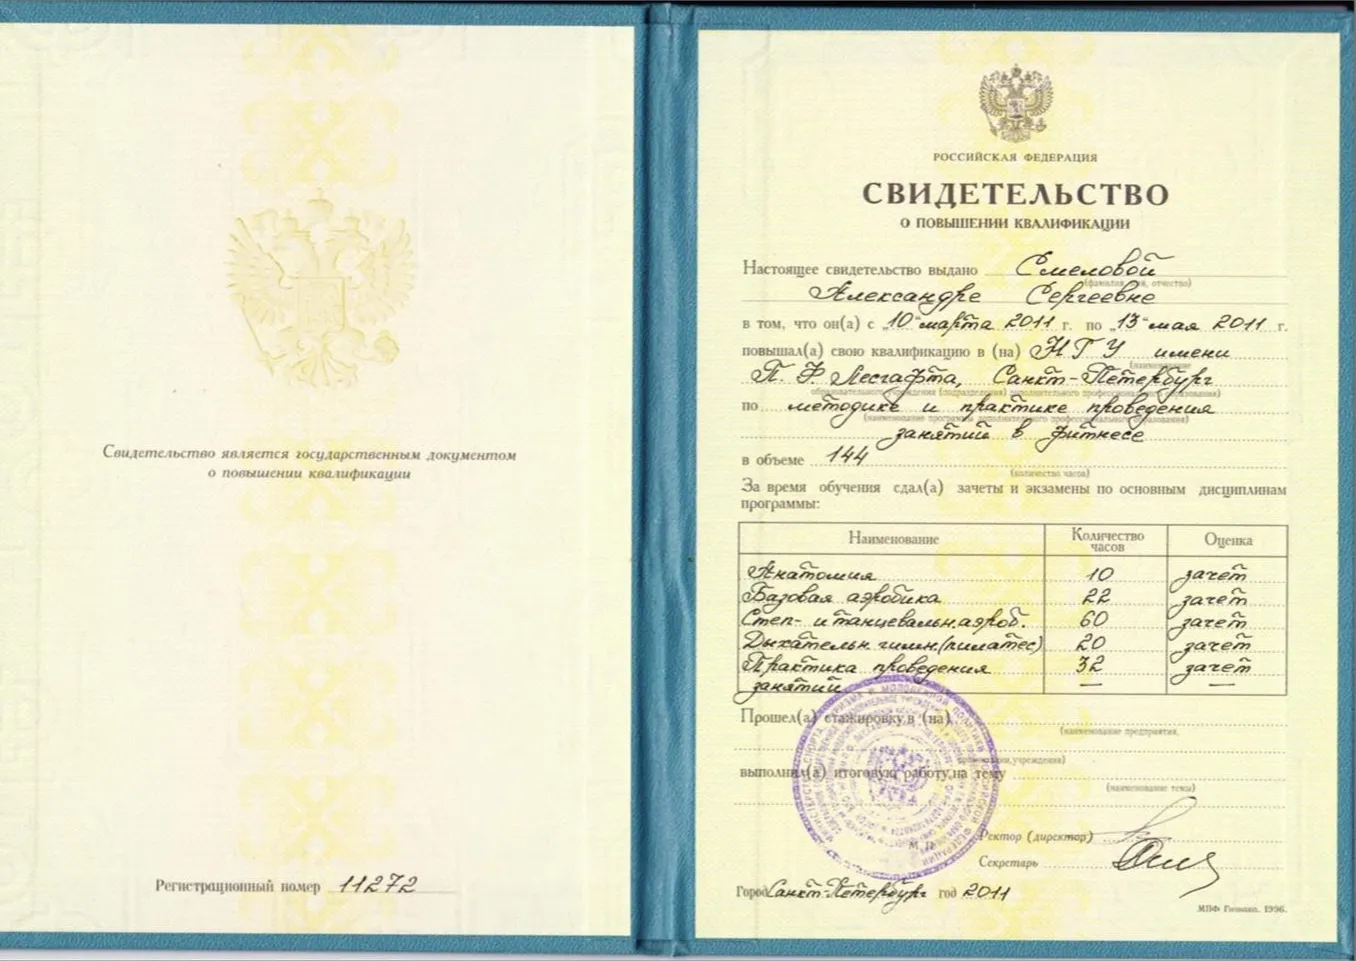 Свидетельство является государственным документом
о повышении квалификации
Регистрационный номер 11272
РОССИЙСКАЯ ФЕДЕРАЦИЯ
СВИДЕТЕЛЬСТВО
О ПОВЫШЕНИИ КВАЛИФИКАЦИИ
Настоящее свидетельство выдано Смеловой
(фамилия, имя, отчество)
Александре Сергеевне
в том, что он(а) с „10“ марта 2011 г. по „13“ мая 2011 г.
повышал(а) свою квалификацию в (на) НГУ имени
(наименование
П. Ф. Лесгафта, Санкт-Петербург
образовательного учреждения (подразделения) дополнительного профессионального образования)
по методике и практике проведения
(наименование программы дополнительного профессионального образования)
занятий в фитнесе
в объеме 144
(количество часов)
За время обучения сдал(а) зачеты и экзамены по основным дисциплинам
программы:
Наименование Количество часов Оценка
Анатомия 10 зачет
Базовая аэробика 22 зачет
Степ- и танцевальн. аэроб. 60 зачет
Дыхательн. гимн. (пилатес) 20 зачет
Практика проведения 32 зачет
занятий — —
Прошел(а) стажировку в (на)
(наименование предприятия,
организации, учреждения)
выполнил(а) итоговую работу на тему
(наименование темы)
М. П.
Ректор (директор)
Секретарь
Город Санкт-Петербург год 2011
МПФ Гознака. 1996.